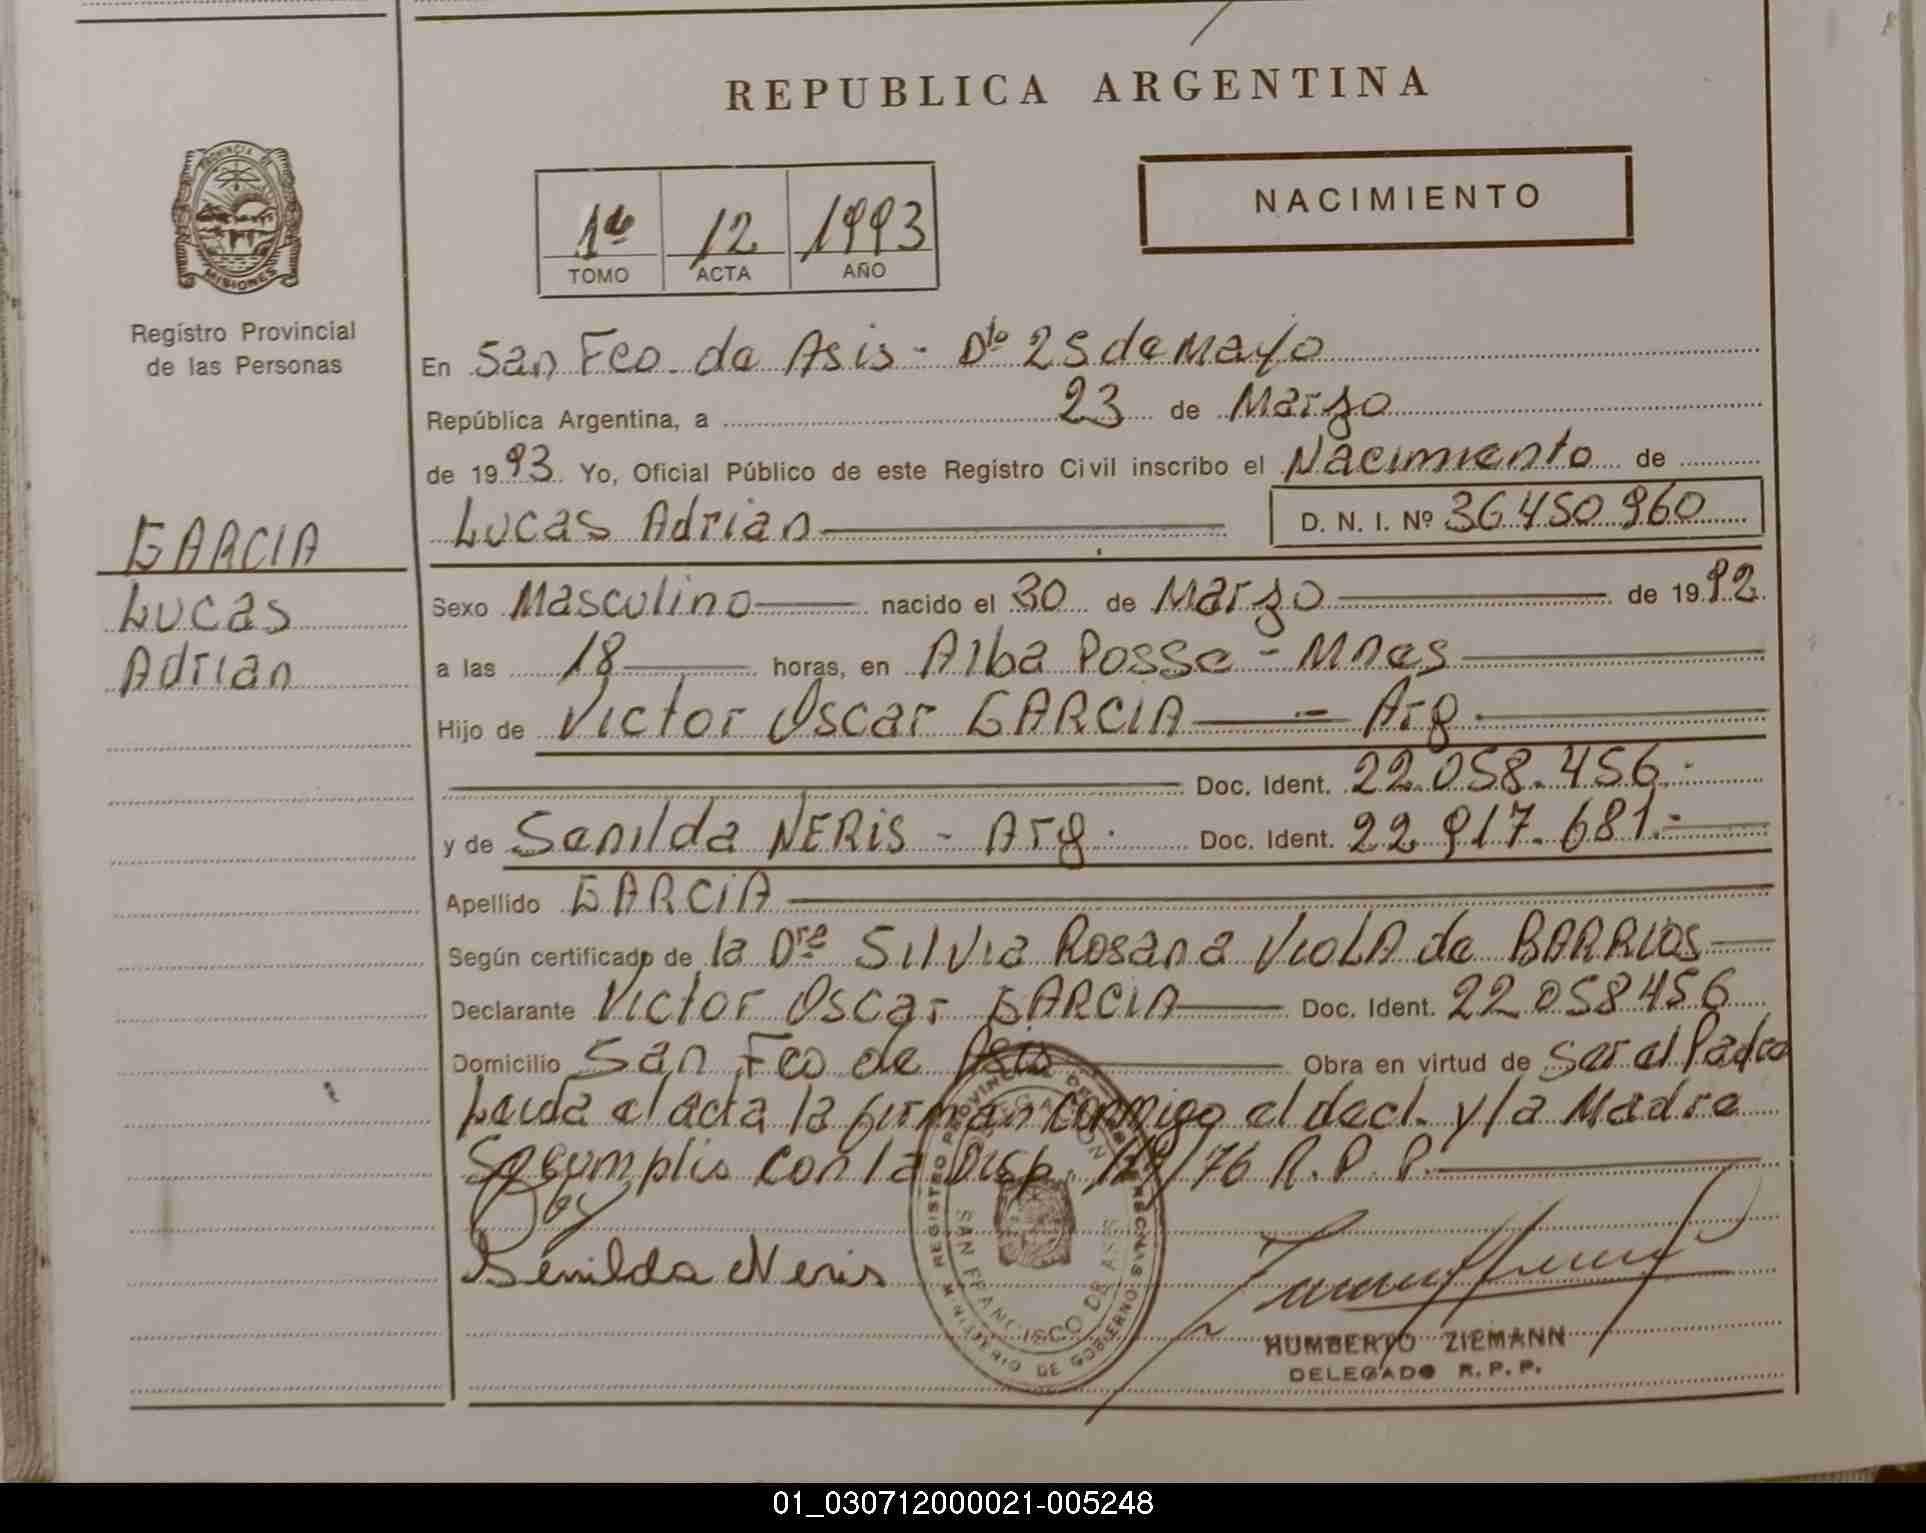 REPUBLICA ARGENTINA
NACIMIENTO
1º 12 1993
TOMO ACTA AÑO
PROVINCIA DE MISIONES
Registro Provincial
de las Personas
GARCIA
Lucas
Adrian
En San Fco. de Asis - Dto 25 de Mayo
República Argentina, a 23 de Marzo
de 1993. Yo, Oficial Público de este Registro Civil inscribo el Nacimiento de
Lucas Adrian D. N. I. Nº 36450960
Sexo Masculino nacido el 30 de Marzo de 1992.
a las 18 horas, en Alba Posse - Mnes
Hijo de Victor Oscar GARCIA - Arg
Doc. Ident. 22.058.456.-
y de Senilda NERIS - Arg. Doc. Ident. 22 917.681.-
Apellido GARCIA
Según certificado de la Dra Silvia Rosana VIOLA de BARRIOS
Declarante Victor Oscar GARCIA Doc. Ident. 22058456
Domicilio San Fco de Asis Obra en virtud de Ser el Padre
Leida el acta la firman conmigo el decl. y la Madre
Se cumplio con la Disp. /76 R.P.P.
Senilda Neris
REGISTRO PROVINCIAL DE LAS PERSONAS
DELEGACION
SAN FRANCISCO DE ASIS
MINISTERIO DE GOBIERNO
HUMBERTO ZIEMANN
DELEGADO R.P.P.
01_030712000021-005248